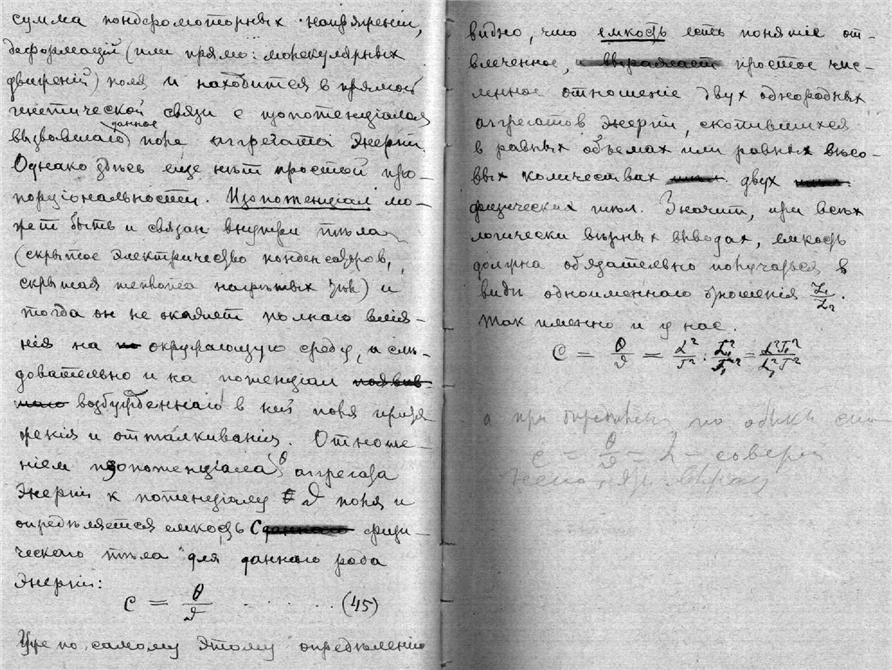 сумма пондеромоторныхъ напряженій,
деформацій (или прямо: молекулярныхъ
движеній) поля и находится в прямой
генетической связи с изопотенціалом
вызвавшаго данное поле агрегата Энергіи.
Однако здѣсь еще нѣт простой про-
порціональности. Изопотенціал мо-
жет быть и связан внутри тѣла
(скрытое электричество конденсаторов,
скрытая теплота нагрѣтых тѣл) и
тогда он не окажет полнаго влія-
нія на окружающую среду, а слѣ-
довательно и на потенціал
возбужденнаго в ней поля притя
женія и отталкиванія. Отноше-
ніем изопотенціала θ агрегата
Энергіи к потенціалу ϑ поля и
опредѣляется емкость C физи-
ческаго тѣла для даннаго рода
Энергіи:
C = θ/ϑ . . . . . . . (45)
Уже по самому этому опредѣленію
видно, что емкость есть понятіе от-
влеченное, простое чис-
ленное отношеніе двух однородных
агрегатов Энергіи, скопившихся
в равных объемах или равных вѣсо-
вых количествах двух
физических тѣл. Значит, при всѣх
логически вѣрных выводах, емкость
должна обязательно получаться в
видѣ одноименнаго отношенія L₁/L₂.
Так именно и у нас.
C = θ/ϑ = L²/T² : L₁²/T₁² = L²T₁²/L₁²T²
а при по
c = θ/ϑ = L –